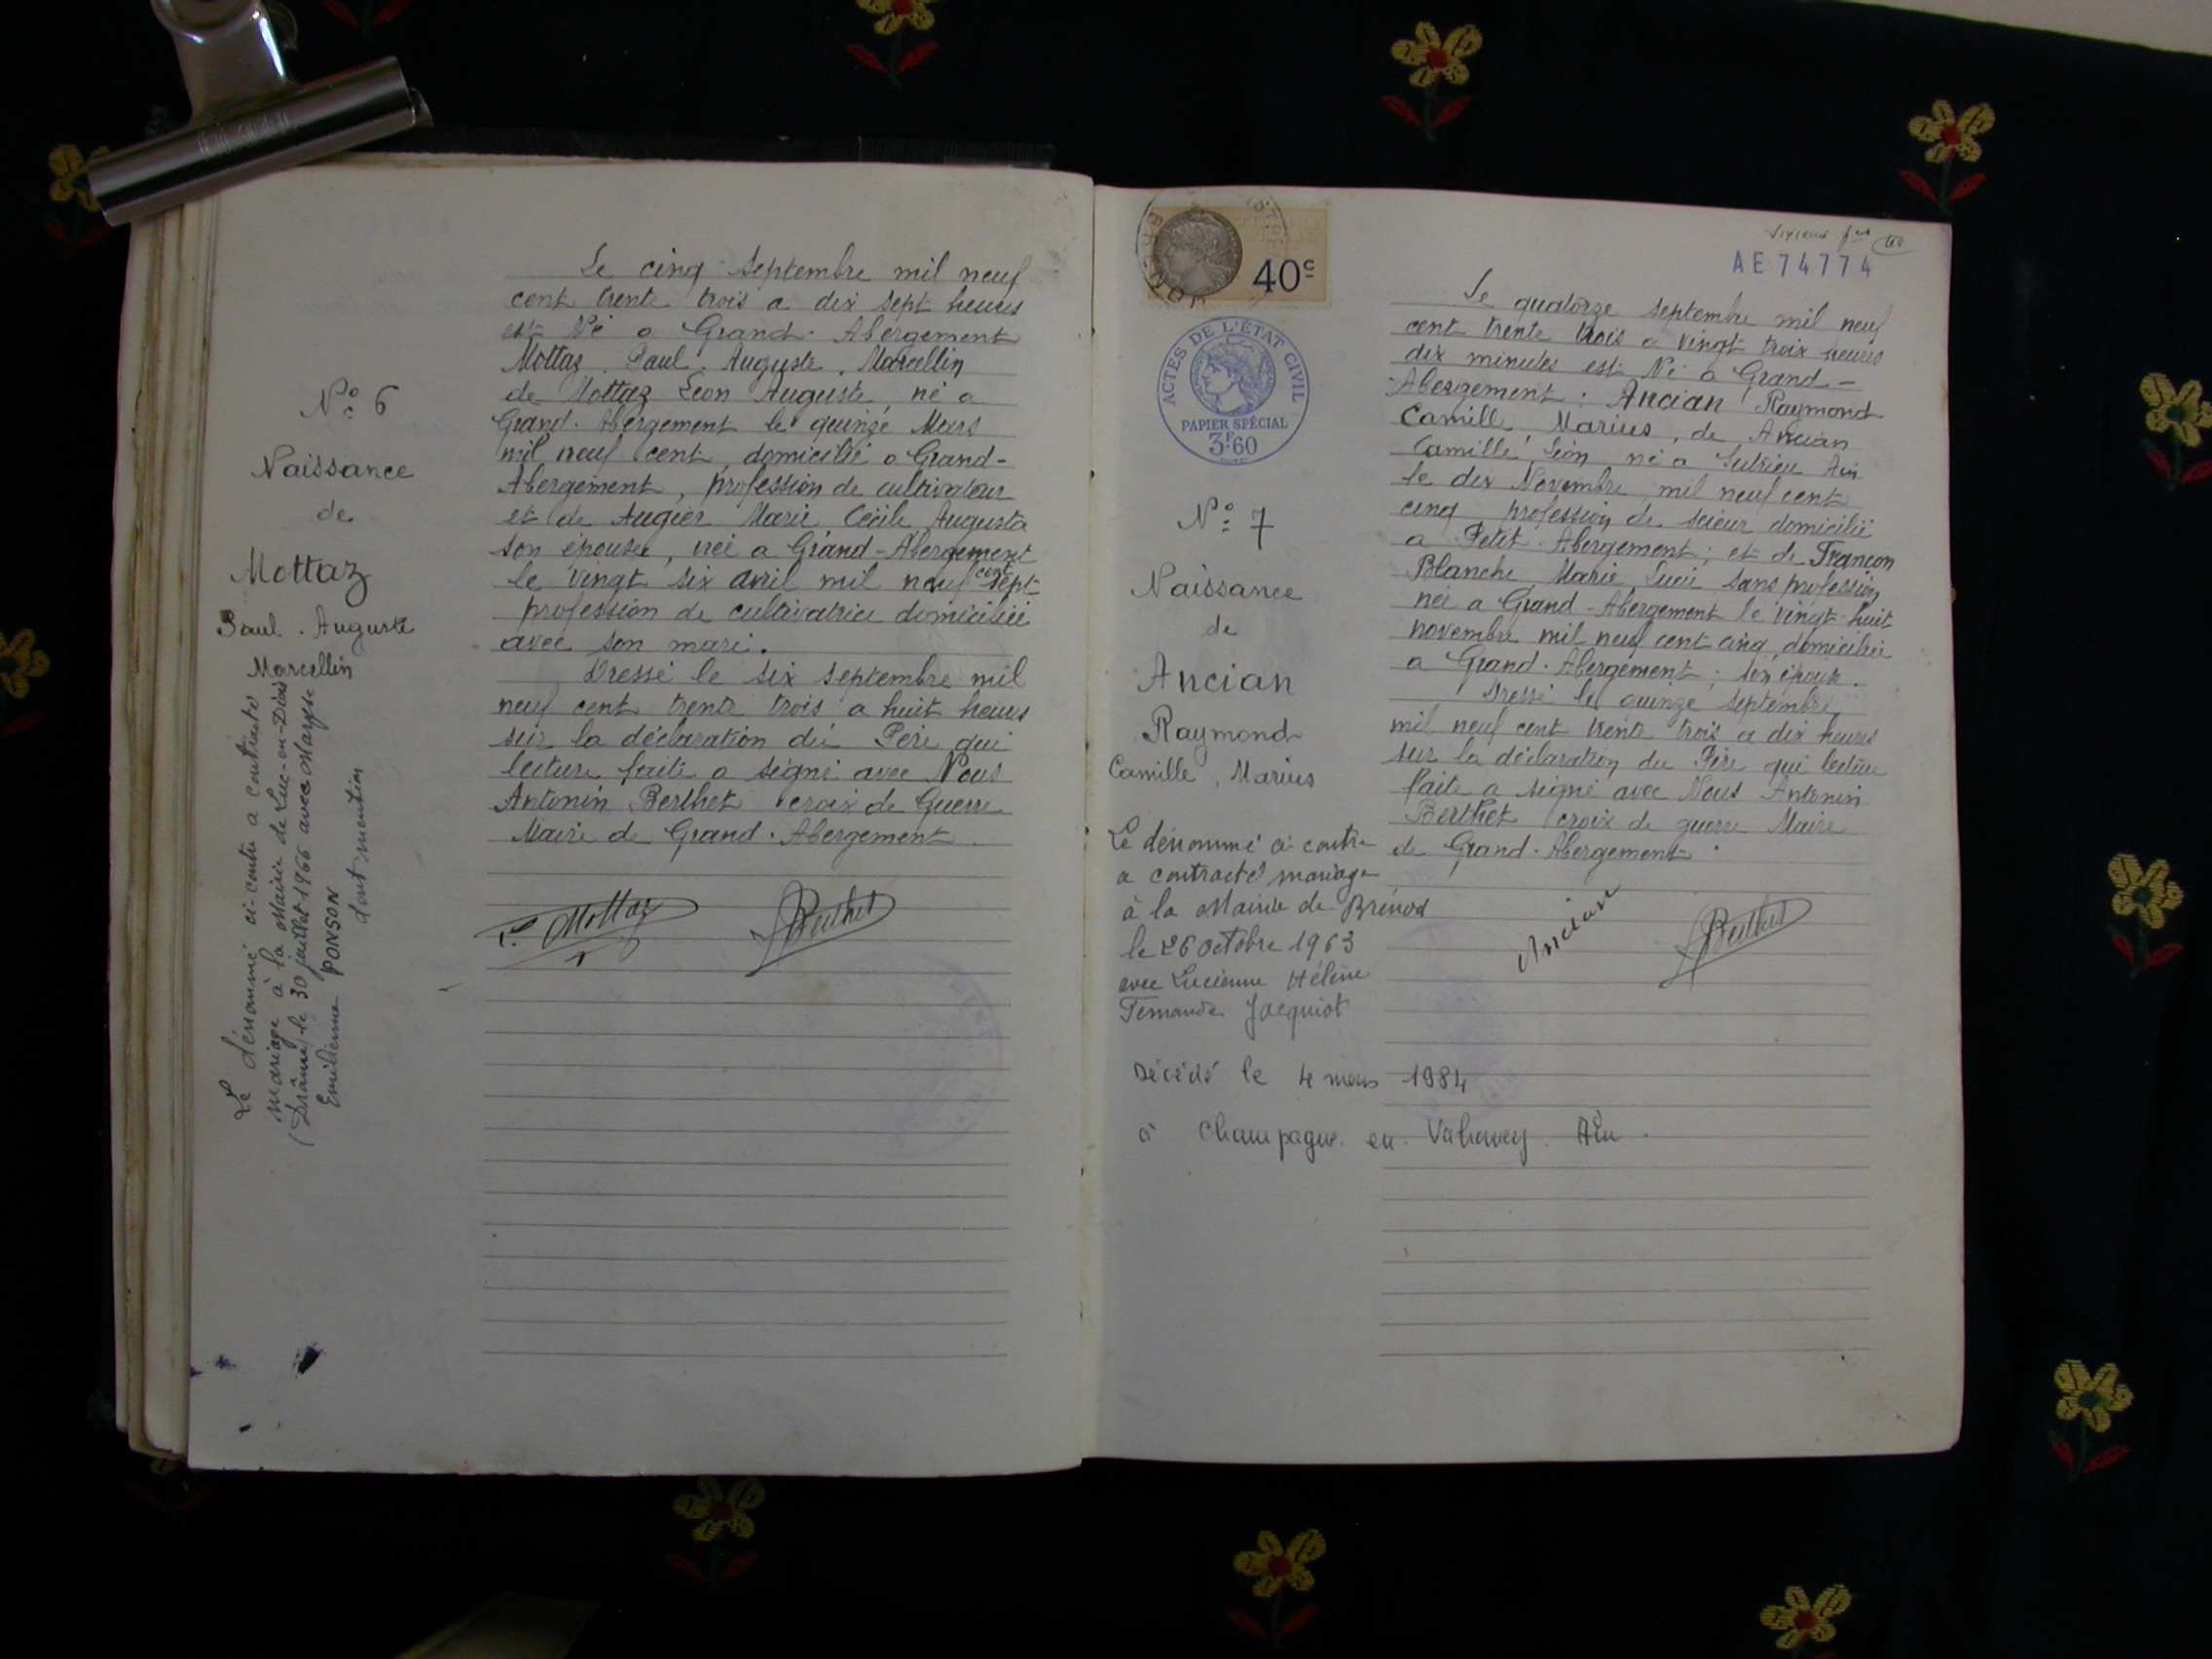 N° 6
Naissance
de
Mottaz
Paul. Auguste
Marcellin
Le dénommé ci-contre a contracté
mariage à la Mairie de Luc-en-Diois
(Drôme) le 30 juillet 1966 avec Maryse
Emilienne PONSON
dont mention
Le cinq septembre mil neuf
cent trente trois a dix sept heures
est Né a Grand-Abergement
Mottaz. Paul. Auguste. Marcellin
de Mottaz Léon Auguste, né a
Grand-Abergement le quinze Mars
mil neuf cent, domicilié a Grand-
Abergement, profession de cultivateur
et de Augier Marie Cécile Augusta
son épouse, née a Grand-Abergement
le vingt six avril mil neuf cent sept
profession de cultivatrice domiciliée
avec son mari.
Dressé le six septembre mil
neuf cent trente trois a huit heures
sur la déclaration du Père qui
lecture faite a signé avec Nous
Antonin Berthet croix de Guerre
Maire de Grand-Abergement
Mottaz Berthet
40c
ACTES DE L'ÉTAT CIVIL
PAPIER SPÉCIAL
3F.60
AE74774
N° 7
Naissance
de
Ancian
Raymond
Camille, Marius
Le dénommé ci-contre
a contracté mariage
à la Mairie de Brénod
le 26 octobre 1963
avec Lucienne Hélène
Fernande Jacquiot
Décédé le 4 mars 1984
à Champagne en Valromey. Ain.
Le quatorze septembre mil neuf
cent trente trois a vingt trois heures
dix minutes est Né a Grand-
Abergement: Ancian Raymond
Camille, Marius, de Ancian
Camille, Léon né a Sutrieu Ain
le dix Novembre mil neuf cent
cinq profession de scieur domicilié
a Petit-Abergement; et de Françon
Blanche Marie Lucie sans profession
née a Grand-Abergement le vingt-huit
novembre mil neuf cent cinq, domiciliée
a Grand-Abergement; son épouse.
Dressé le quinze septembre
mil neuf cent trente trois a dix heures
sur la déclaration du Père qui lecture
faite a signé avec Nous Antonin
Berthet croix de guerre Maire
de Grand-Abergement.
Ancian Berthet